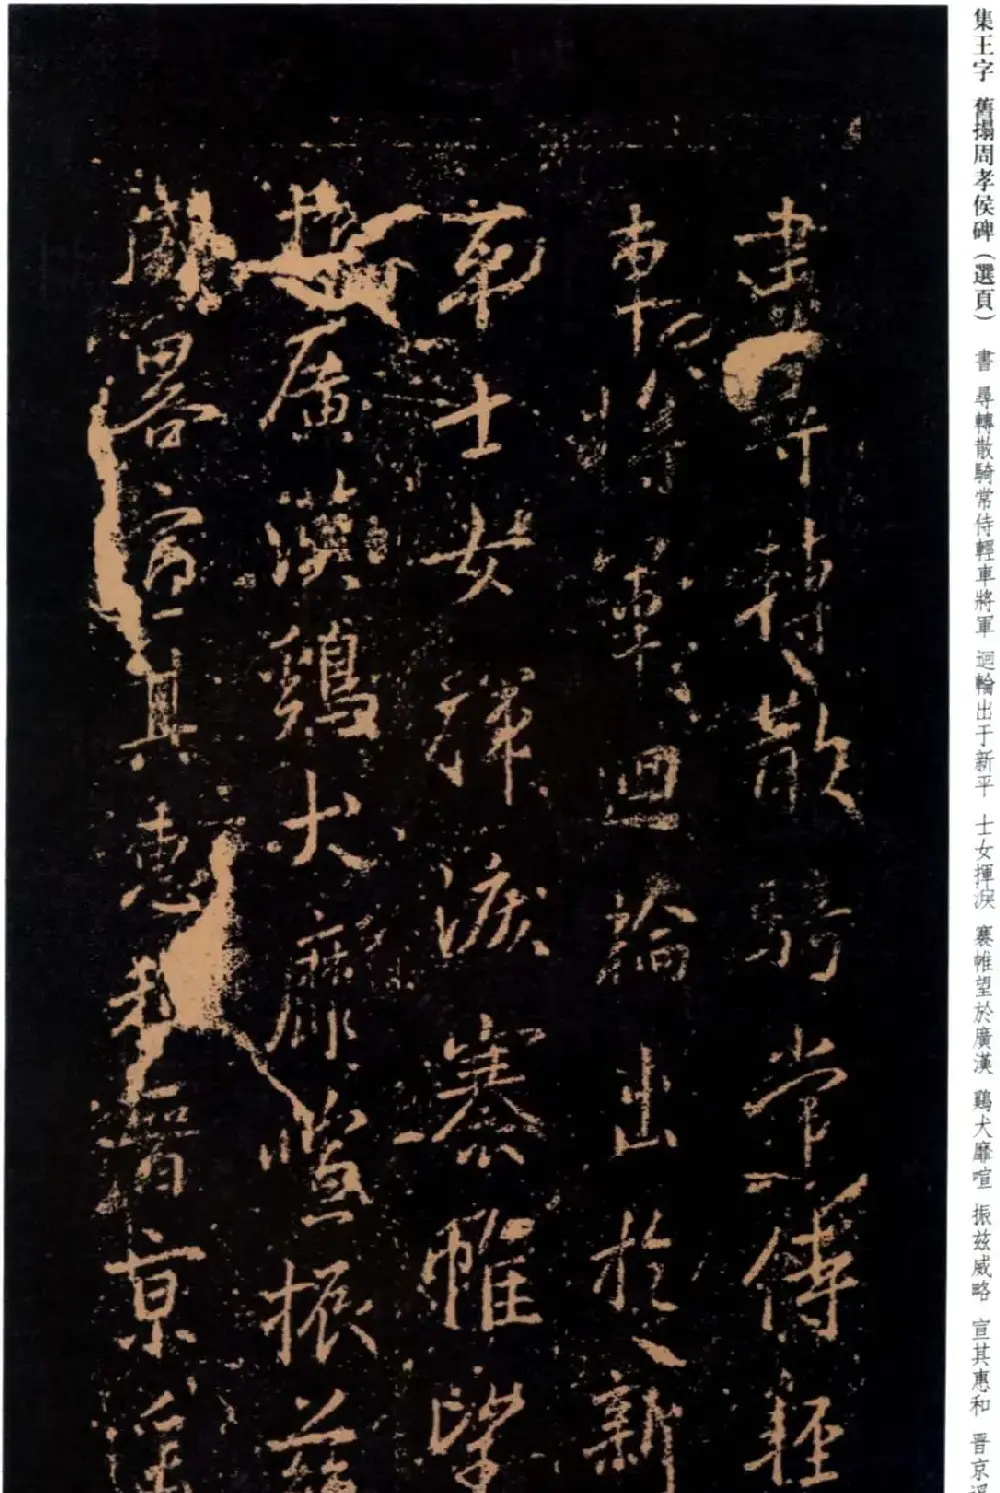 集王字 舊搨周孝侯碑（選頁） 書 尋轉散騎常侍輕車將軍 迴輪出于新平 士女揮淚 褰帷望於廣漢 鷄犬靡喧 振兹威略 宣其惠和 晋京遥
書尋轉散騎常侍輕
車將軍迴輪出於新
平士女揮淚褰帷望
於廣漢鷄犬靡喧振兹
威畧宣其惠和晉京遥